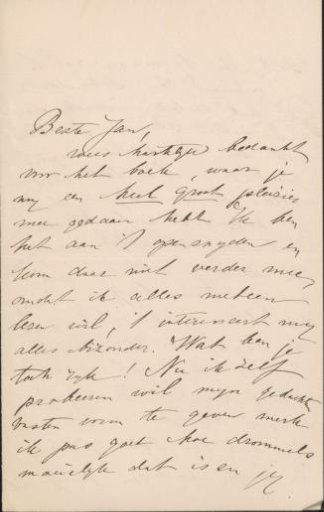 Beste Jan,
wees hartelijk bedankt
voor het boek, waar je
mij een heel groot pleisier
mee gedaan hebt. Ik ben
het aan 't opensnyden en
kom daar niet verder mee,
omdat ik alles meteen
lezen wil, 't interesseert mij
alles bizonder. Wat kan je
toch zyn! Nu ik zelf
probeeren wil myn gedachten
vasten vorm te geven merk
ik pas goed hoe drommels
moeielyk dat is en jy